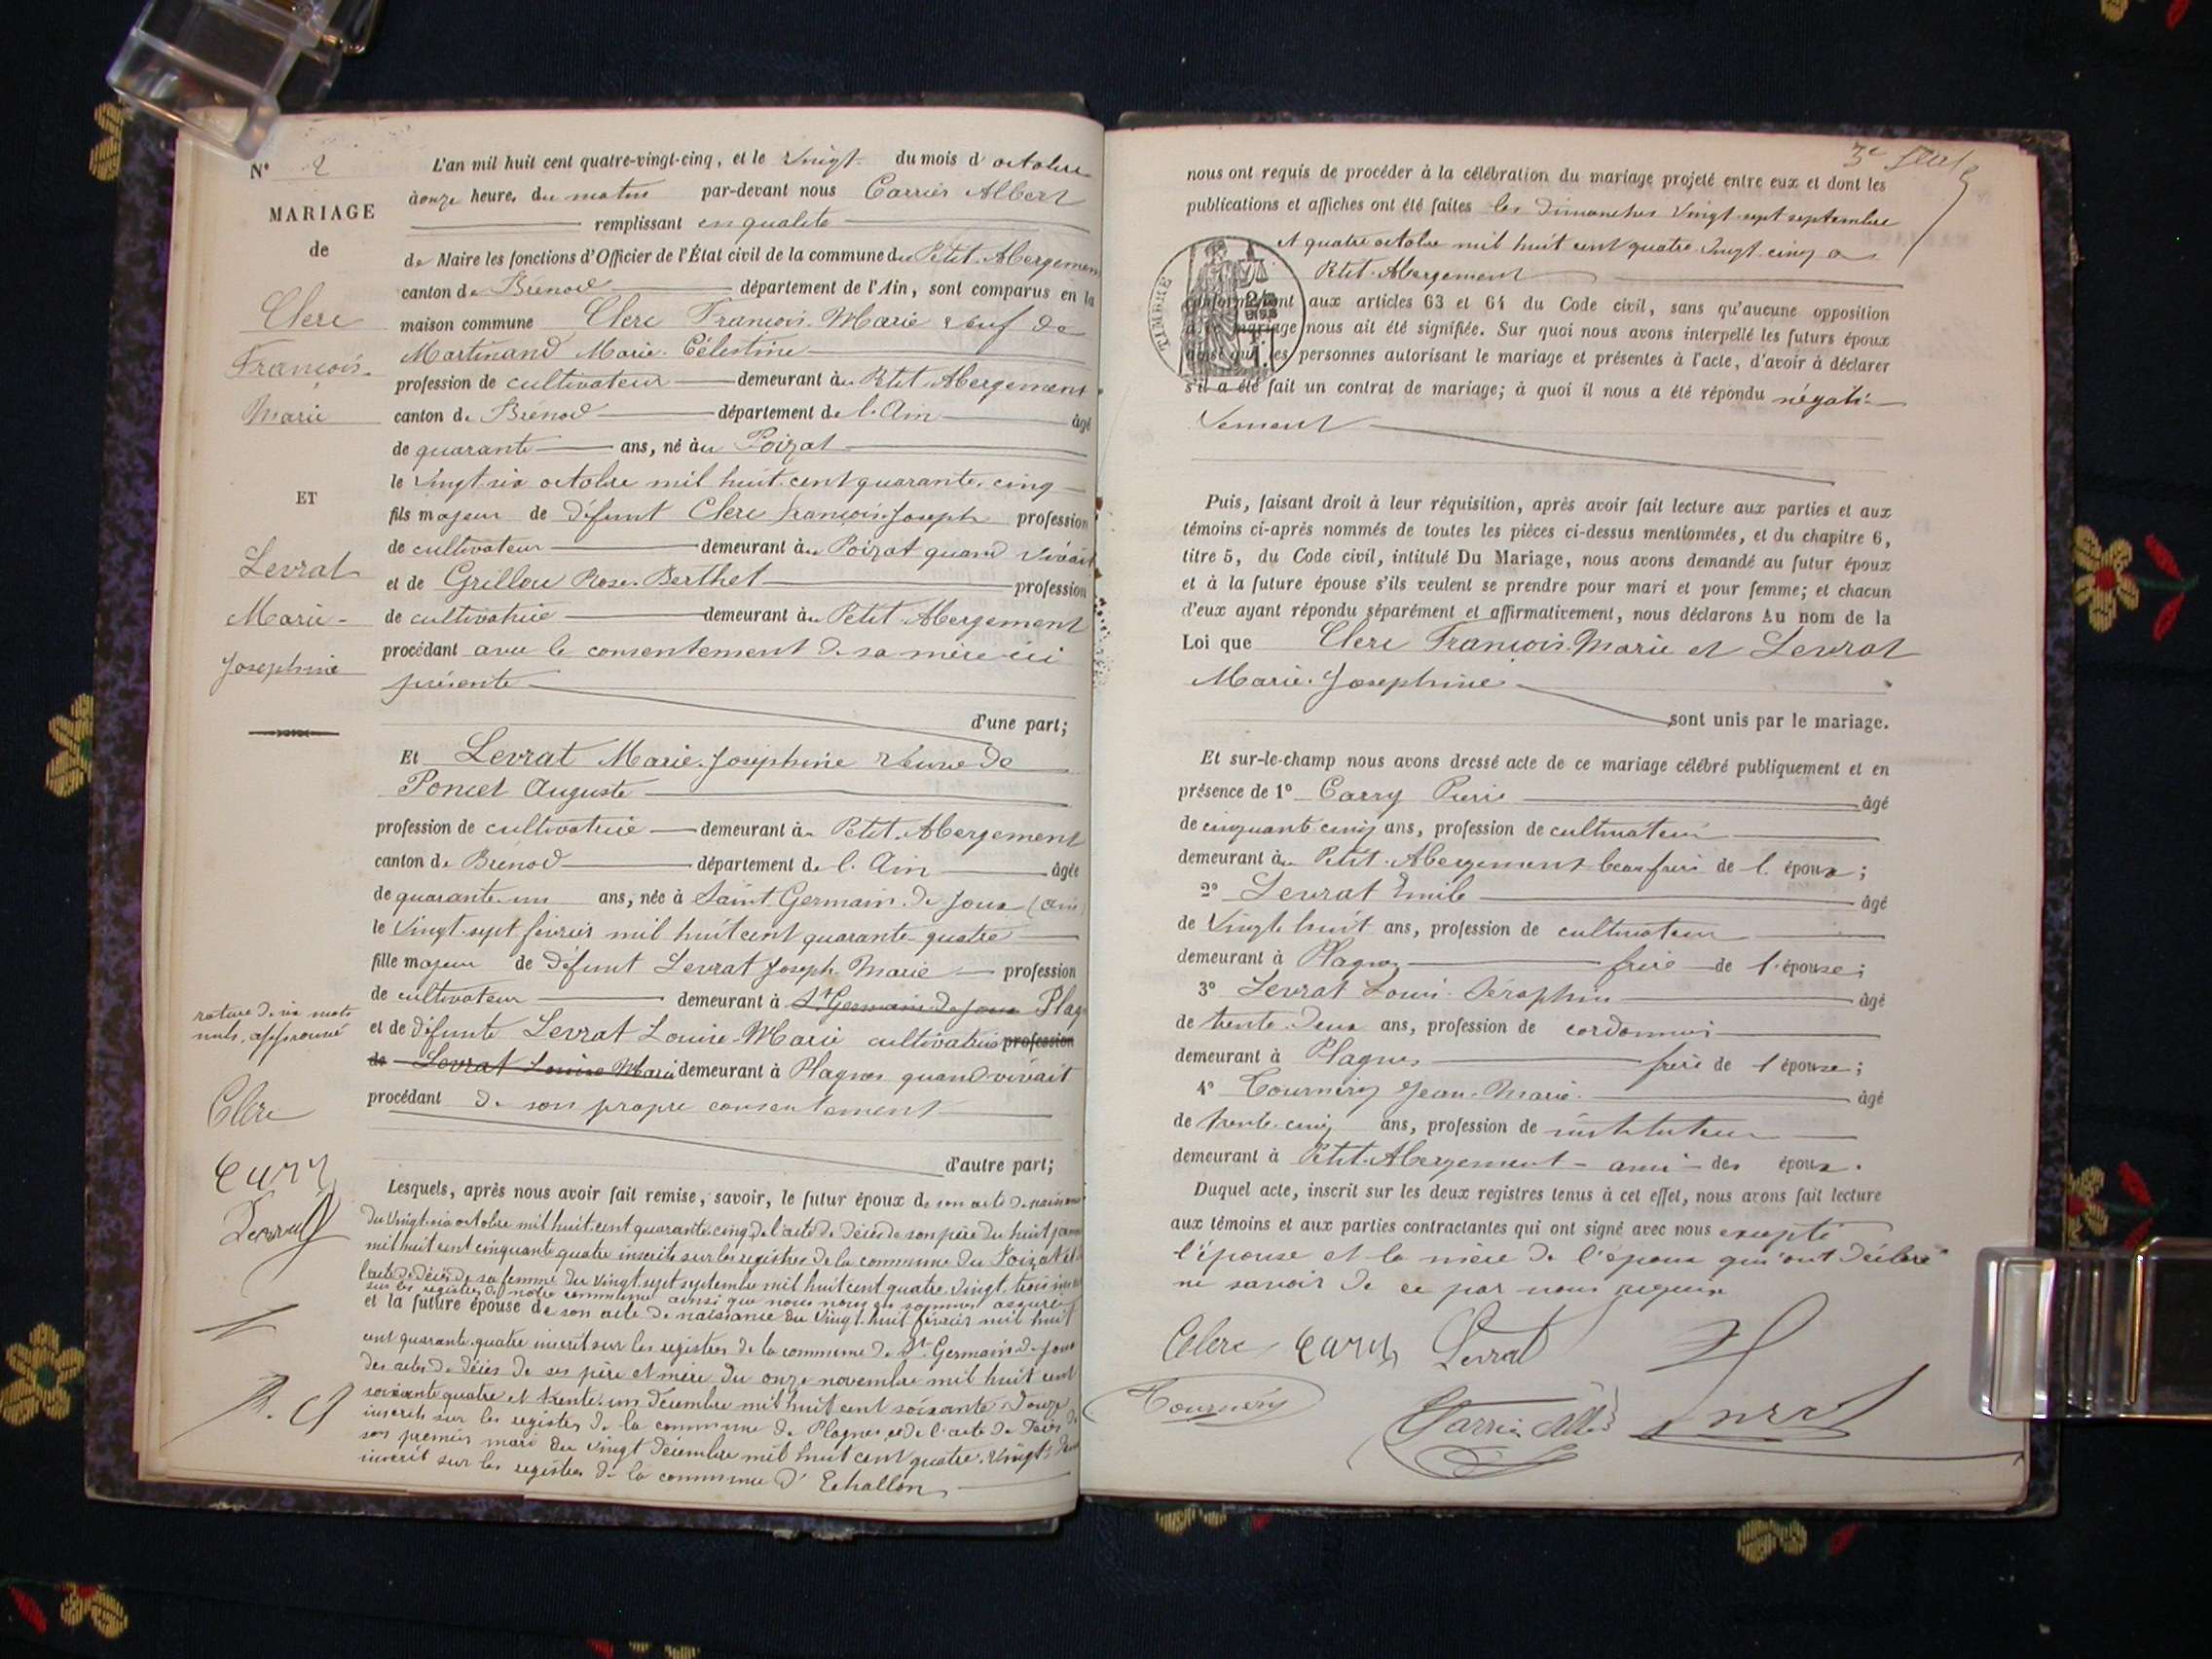 N° 2
MARIAGE
de
Clerc
François-
Marie
ET
Levrat
Marie-
Josephine
rature de six mots
nuls, approuvé
Clerc
Cury
Levrat
L'an mil huit cent quatre-vingt-cinq, et le vingt du mois d'octobre
à onze heures du matin par-devant nous Carrier Albert
remplissant en qualité
de Maire les fonctions d'Officier de l'État civil de la commune du Petit-Abergement
canton de Brénod département de l'Ain, sont comparus en la
maison commune Clerc François-Marie veuf de
Martinand Marie-Célestine
profession de cultivateur demeurant au Petit-Abergement
canton de Brénod département de l'Ain âgé
de quarante ans, né au Poizat
le vingt-six octobre mil huit cent quarante-cinq
fils majeur de défunt Clerc françois-Joseph profession
de cultivateur demeurant au Poizat quand vivait
et de Grillou Rose-Berthet profession
de cultivatrice demeurant au Petit-Abergement
procédant avec le consentement de sa mère ici
présente
d'une part;
Et Levrat Marie-Joséphine veuve de
Poncet Auguste
profession de cultivatrice demeurant à Petit-Abergement
canton de Brénod département de l'Ain âgée
de quarante-un ans, née à Saint-Germain-de-Joux (Ain)
le vingt-sept février mil huit cent quarante-quatre
fille majeur de défunt Levrat Joseph-Marie profession
de cultivateur demeurant à St Germain-de-Joux Plag
et de défunte Levrat Louise-Marie cultivatrice profession
de Levrat Louise Marie demeurant à Plagnes quand vivait
procédant de son propre consentement
d'autre part;
Lesquels, après nous avoir fait remise, savoir, le futur époux de son acte de naissance
du vingt-six octobre mil huit cent quarante-cinq, de l'acte de décès de son père du huit
mil huit cent cinquante quatre inscrits sur les registres de la commune du Poizat et
l'acte de décès de sa femme du vingt sept septembre mil huit cent quatre-vingt-trois
sur les registres de notre commune ainsi que nous nous en sommes assuré
et la future épouse de son acte de naissance du vingt-huit février mil huit
cent quarante-quatre inscrit sur les registres de la commune de St Germain-de-Joux
des actes de décès de ses père et mère du onze novembre mil huit cent
soixante quatre et trente-un décembre mil huit cent soixante-douze
inscrits sur les registres de la commune de Plagnes et de l'acte de décès de
son premier mari du vingt décembre mil huit cent quatre-vingt-deux
inscrit sur les registres de la commune d'Echallon
nous ont requis de procéder à la célébration du mariage projeté entre eux et dont les
publications et affiches ont été faites les dimanches vingt-sept septembre
et quatre octobre mil huit cent quatre-vingt-cinq a
Petit-Abergement
TIMBRE
conformément aux articles 63 et 64 du Code civil, sans qu'aucune opposition
à ce mariage nous ait été signifiée. Sur quoi nous avons interpellé les futurs époux
ainsi que les personnes autorisant le mariage et présentes à l'acte, d'avoir à déclarer
s'il a été fait un contrat de mariage; à quoi il nous a été répondu négati-
vement
Puis, faisant droit à leur réquisition, après avoir fait lecture aux parties et aux
témoins ci-après nommés de toutes les pièces ci-dessus mentionnées, et du chapitre 6,
titre 5, du Code civil, intitulé Du Mariage, nous avons demandé au futur époux
et à la future épouse s'ils veulent se prendre pour mari et pour femme; et chacun
d'eux ayant répondu séparément et affirmativement, nous déclarons Au nom de la
Loi que Clerc François-Marie et Levrat
Marie-Josephine
sont unis par le mariage.
Et sur-le-champ nous avons dressé acte de ce mariage célébré publiquement et en
présence de 1° Carry Pierre âgé
de cinquante cinq ans, profession de cultivateur
demeurant au Petit-Abergement beau frère de l'époux;
2° Levrat Emile âgé
de vingt-huit ans, profession de cultivateur
demeurant à Plagnes frère de l'épouse;
3° Levrat Louis-Séraphin âgé
de trente-deux ans, profession de cordonnier
demeurant à Plagnes frère de l'épouse;
4° Tournéry Jean-Marie âgé
de trente-cinq ans, profession de instituteur
demeurant à Petit-Abergement - ami - des époux.
Duquel acte, inscrit sur les deux registres tenus à cet effet, nous avons fait lecture
aux témoins et aux parties contractantes qui ont signé avec nous excepté
l'épouse et la mère de l'époux qui ont déclaré
ne savoir de ce par nous requises
Clerc Cury Levrat
Tournéry Carrier Alb